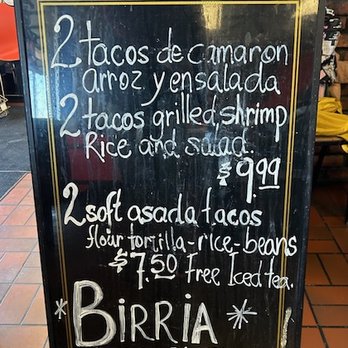 2 tacos de camaron
arroz y ensalada
2 tacos grilled shrimp
Rice and salad.
$9.99
2 soft asada tacos
flour tortilla-rice-beans
$7.50 Free Iced tea.
*BIRRIA*